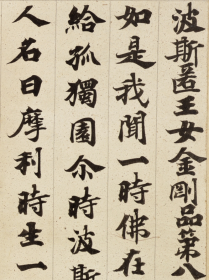 波斯匿王女金剛品第八
如是我聞一時佛在
給孤獨園尒時波斯
人名曰摩利時生一